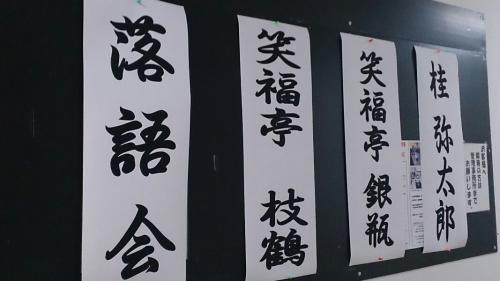 落語会
笑福亭 枝鶴
笑福亭 銀瓶
桂 弥太郎
お客様へ